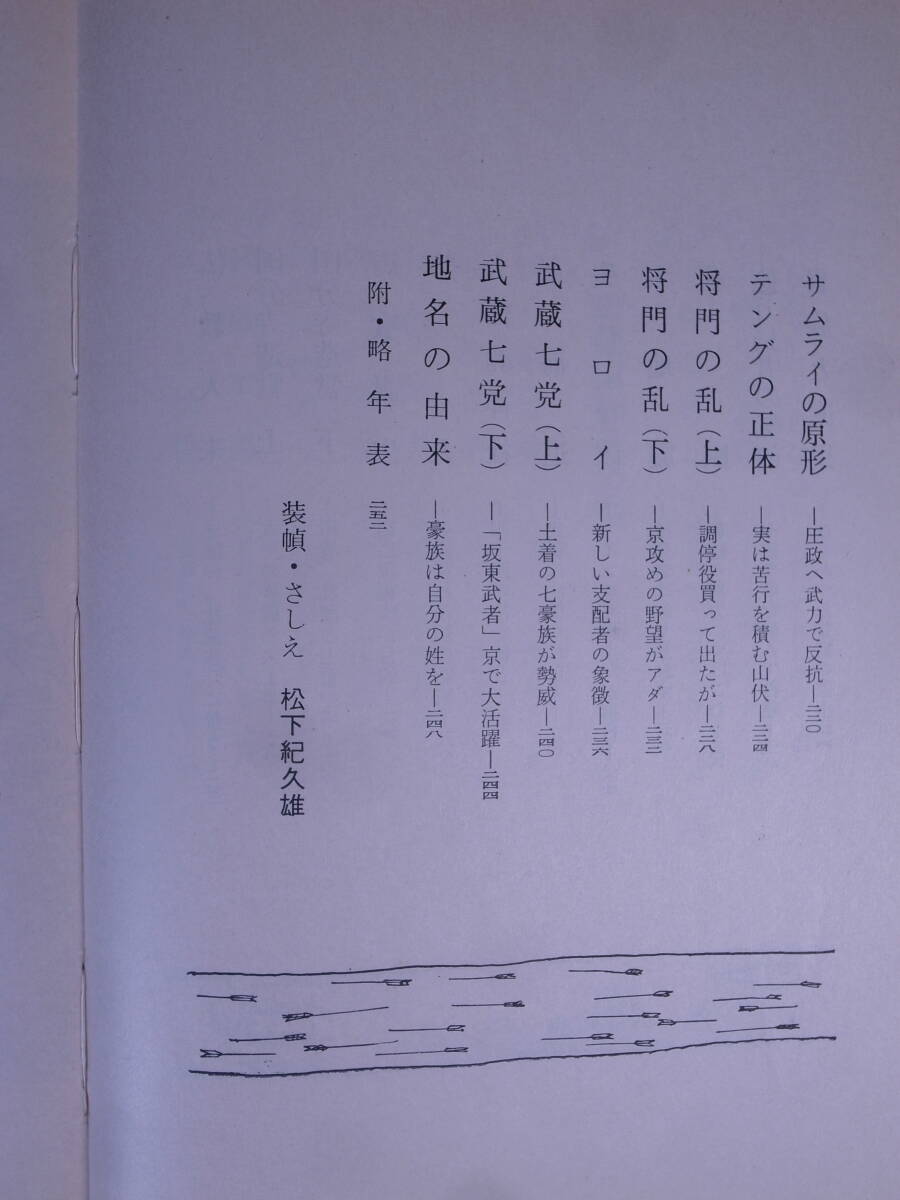 サムライの原形 ―圧政へ武力で反抗―二二〇
テングの正体 ―実は苦行を積む山伏―二二四
将門の乱(上) ―調停役買って出たが―二二八
将門の乱(下) ―京攻めの野望がアダ―二三二
ヨロイ ―新しい支配者の象徴―二三六
武蔵七党(上) ―土着の七豪族が勢威―二四〇
武蔵七党(下) ―「坂東武者」京で大活躍―二四四
地名の由来 ―豪族は自分の姓を―二四八
附・略年表 二五二
装幀・さしえ 松下紀久雄